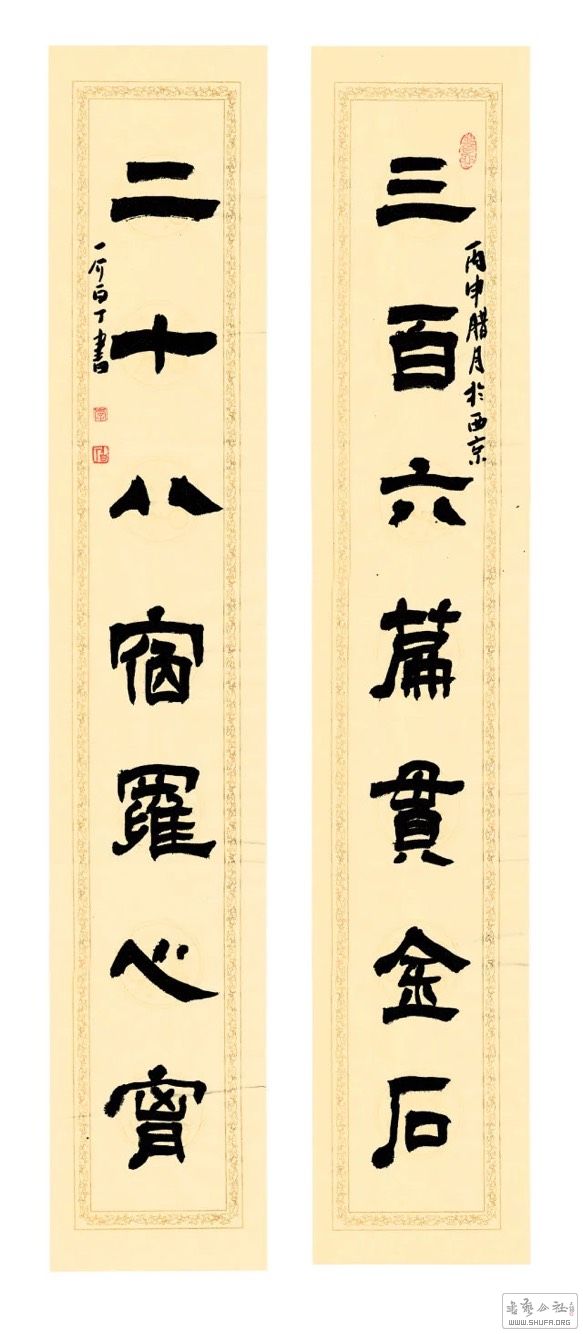 三百六篇貫金石
丙申腊月於西京
二十八宿羅心胷
一介白丁書
書藝公社
WWW.SHUFA.ORG